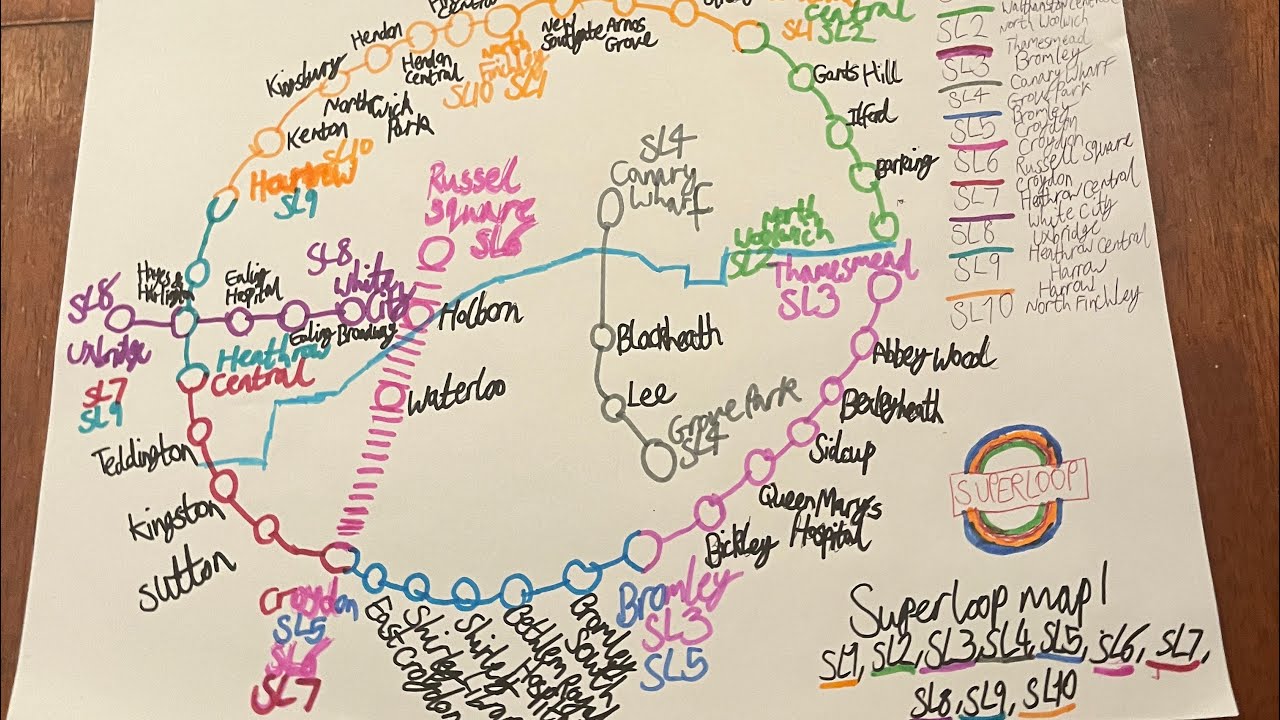 Central
SL1
Central
SL2
Hendon
Hendon
Central
North
Finchley
SL10
SL1
New
Southgate
Arnos
Grove
Kinsbury
North Wick
Park
Kenton
SL10
Harrow
SL9
Gants Hill
Ilford
Barking
SL4
Canary
Wharf
Russel
Square
SL6
North
Woolwich
SL2
Thamesmead
SL3
Hayes &
Harlington
Ealing
Hospital
SL8
White
City
SL8
Uxbridge
Ealing Broadway
Holborn
Heathrow
Central
SL7
SL9
Waterloo
Blackheath
Lee
Grove Park
SL4
Abbey Wood
Bexleyheath
Sidcup
Queen Mary's
Hospital
Bickley
Teddington
Kingston
Sutton
Croydon
SL5
SL6
SL7
East Croydon
Shirley Library
Shirley
Bethlem Royal
Hospital
Bromley
South
Bromley
SL3
SL5
Walthamstow Central
SL2
North Woolwich
Thamesmead
SL3
Bromley
Canary Wharf
SL4
Grove Park
Bromley
SL5
Croydon
Croydon
SL6
Russell Square
Croydon
SL7
Hethrow Central
White City
SL8
Uxbridge
Heathrow Central
SL9
Harrow
Harrow
SL10
North Finchley
SUPERLOOP
Superloop map 1
SL1, SL2, SL3, SL4, SL5, SL6, SL7,
SL8, SL9, SL10